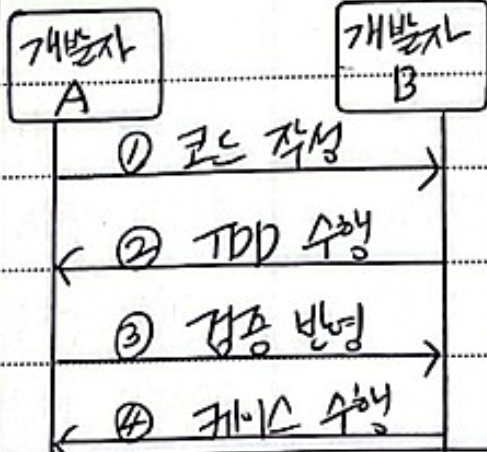 개발자
A
개발자
B
① 코드 작성
② TDD 수행
③ 검증 반영
④ 케이스 수행